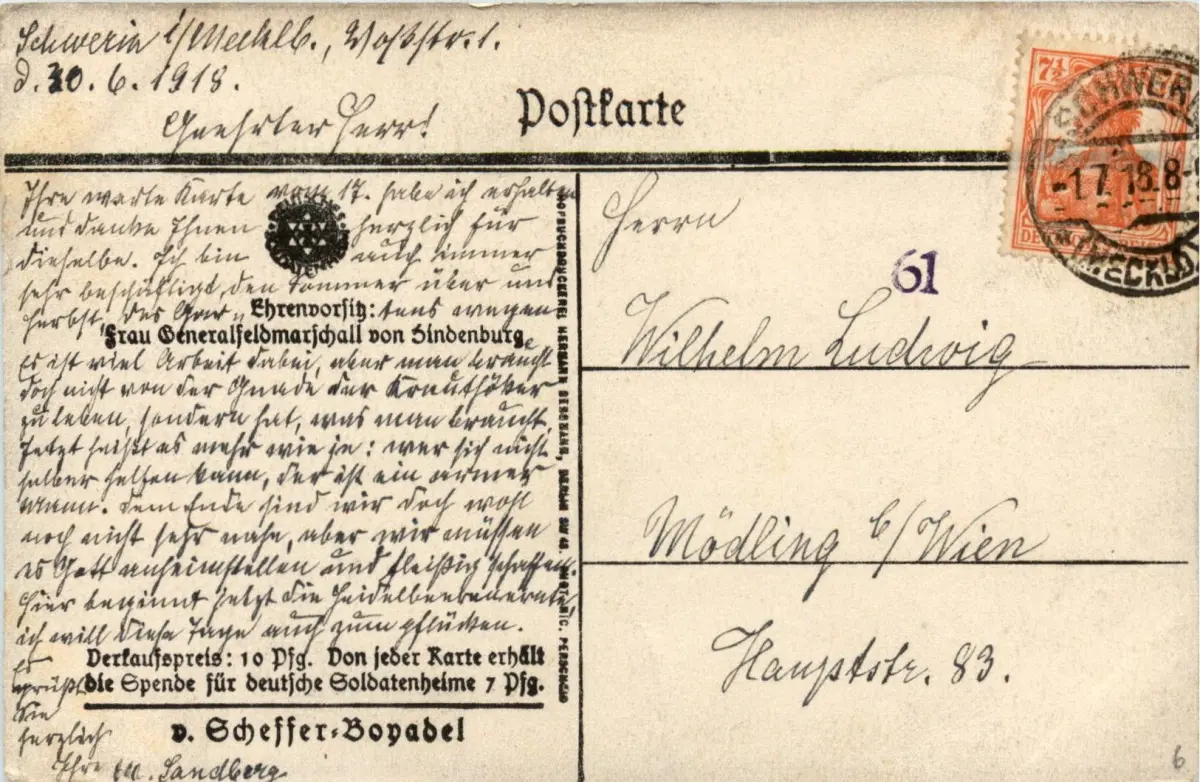 Schwerin i/Mecklb., Voßstr. 1.
d. 30. 6. 1918.
Geehrter Herr!
Postkarte
7½
SCHWERIN
-1.7.18.8-
(MECKLB)
Ihre werte Karte vom 17. habe ich erhalten
und danke Ihnen herzlich für
dieselbe. Ich bin auch immer
sehr beschäftigt, den Sommer über und
Herbst, des wegen
Ehrenvorsitz:
Frau Generalfeldmarschall von Hindenburg
es ist viel Arbeit dabei, aber man braucht
doch nicht von der Gnade der Krauthöker
zu leben, sondern hat, was man braucht.
Jetzt heißt es mehr wie je: wer sich nicht
selber helfen kann, der ist ein armer
Mann. Dem Ende sind wir doch wohl
noch nicht sehr nahe, aber wir müssen
es Gott anheimstellen und fleißig schaffen.
Hier beginnt jetzt die Heidelbeerenernte,
ich will diese Tage auch zum pflücken.
Es
grüßt
Sie
herzlich
Ihre M. Sandberg
Verkaufspreis: 10 Pfg. Von jeder Karte erhält
die Spende für deutsche Soldatenheime 7 Pfg.
v. Scheffer-Boyadel
HOFBUCHDRUCKEREI HERMANN BERGMANN, BERLIN SW 48. PHOT. NIC. PERSCHEID
Herrn
61
Wilhelm Ludwig
Mödling b/Wien
Hauptstr. 83.
6